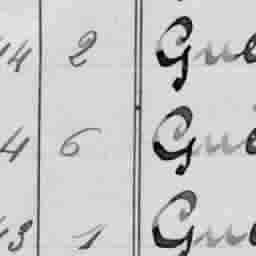 44 2 Gue
4 6 Gue
43 1 Gue